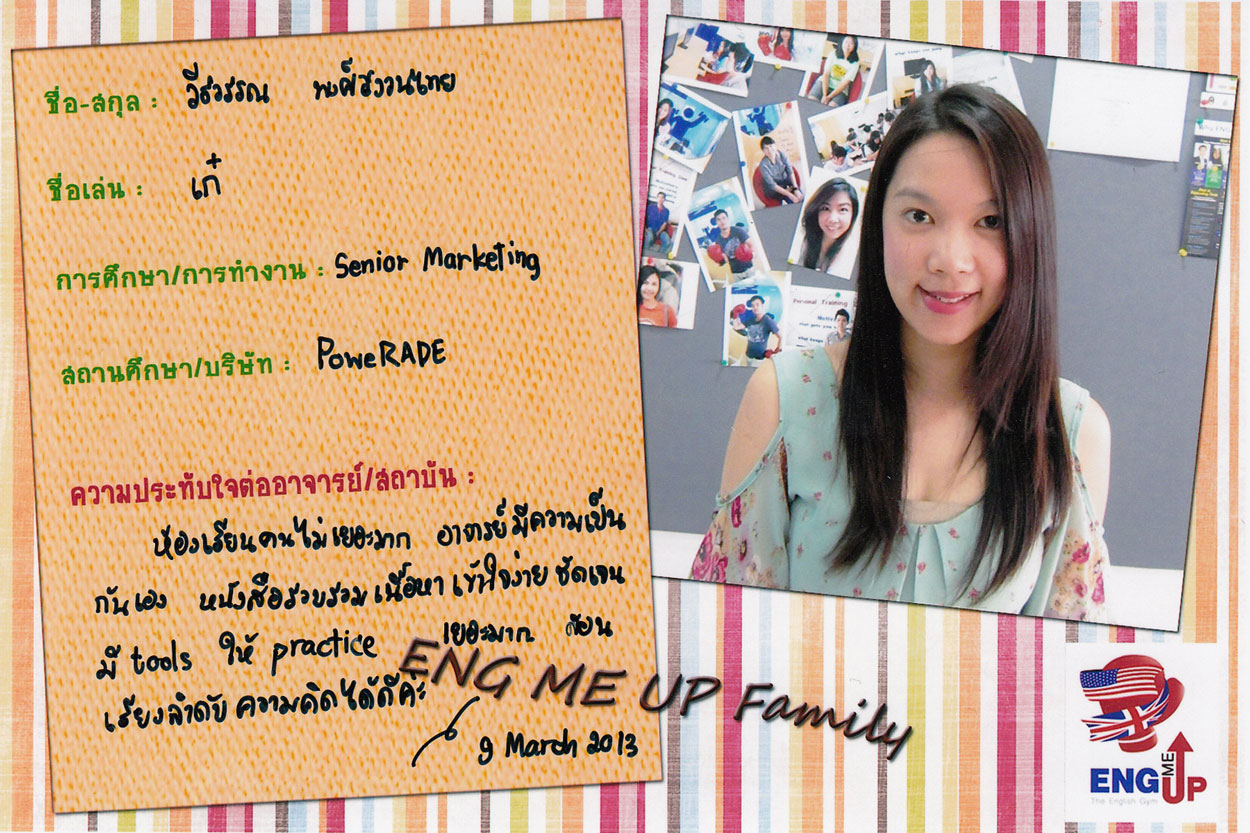 ชื่อ-สกุล : วีธวรรณ
ชื่อเล่น : เก๋
การศึกษา/การทำงาน : Senior Marketing
สถานศึกษา/บริษัท : PoweRADE
ความประทับใจต่ออาจารย์/สถาบัน :
ห้องเรียนคนไม่เยอะมาก อาจารย์มีความเป็น
กันเอง หนังสือรวบรวมเนื้อหา เข้าใจง่าย ชัดเจน
มี tools ให้ practice เยอะมาก สอน
เรียงลำดับความคิดได้ดีค่ะ
9 March 2013
ENG ME UP Family
Personal Training
ENG ME UP
The English Gym